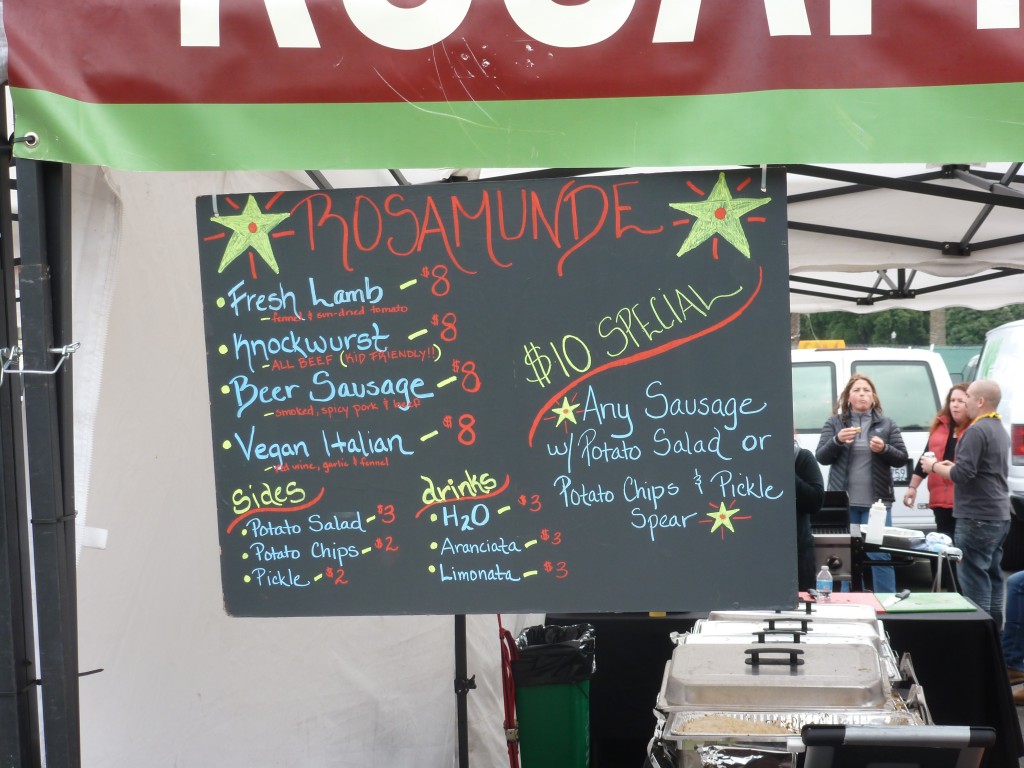 ROSAMUNDE
Fresh Lamb - $8
- fennel & sun-dried tomato
Knockwurst - $8
- ALL BEEF (KID FRIENDLY!!)
Beer Sausage - $8
- smoked, spicy pork & beef
Vegan Italian - $8
- red wine, garlic & fennel
sides
Potato Salad - $3
Potato Chips - $2
Pickle - $2
drinks
H2O - $3
Aranciata - $3
Limonata - $3
$10 SPECIAL
Any Sausage
w/ Potato Salad or
Potato Chips & Pickle
Spear